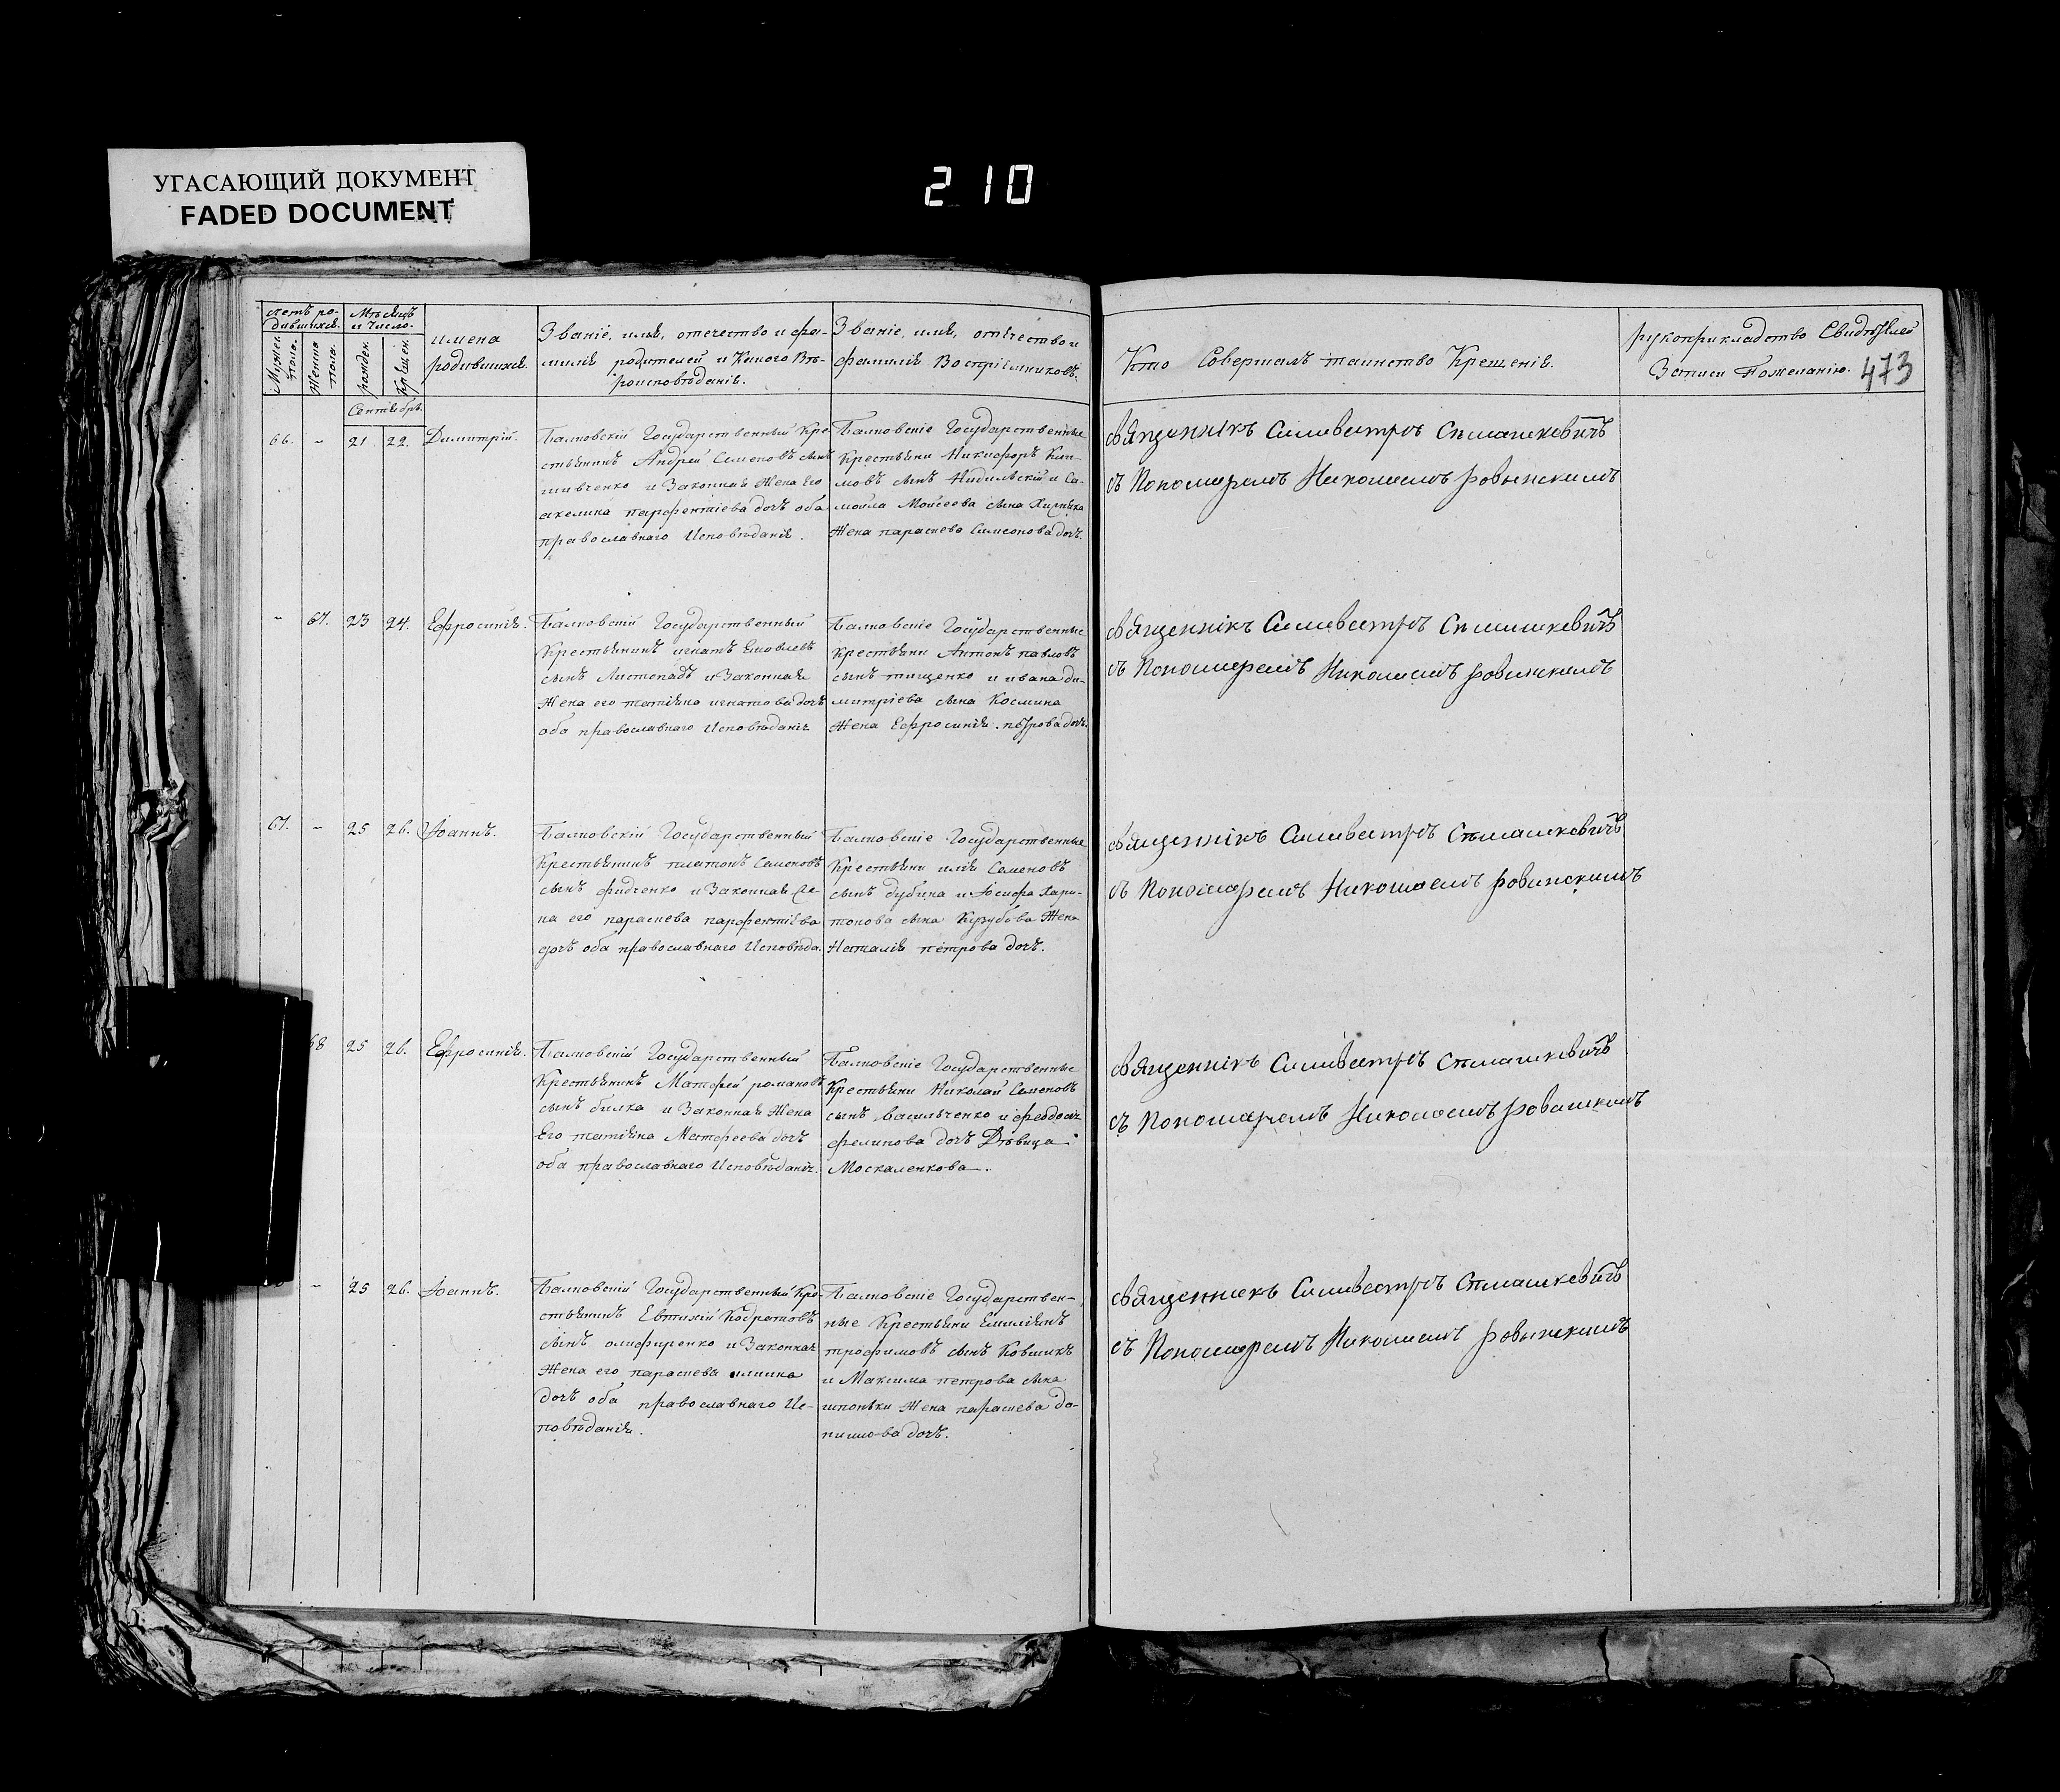 УГАСАЮЩИЙ ДОКУМЕНТ
FADED DOCUMENT
210
473
Счетъ ро-
дившихся.
Мужеска
пола.
Женска
пола.
Мѣсяцъ
и Число.
рожден.
Крещен.
имена
родившихся.
Званіе, имя, отечество и фа-
милія родителей и Какого Вѣ-
роисповѣданія.
Званіе, имя, отечество и
фамилія Воспріемниковъ.
Кто Совершалъ таинство Крещенія.
рукоприкладство Свидѣтелей
Записи Пожеланію.
Сентября
66. - 21. 22. Димитрій.
Балковскій Государственный Кре-
стьянинъ Андрей Семеновъ сынъ
и Законная Жена Его
акелина парфентіева дочь оба
православнаго Исповѣданія.
Балковскіе Государственные
Крестьяни Никифоръ Кли-
мовъ сынъ Нидильскій и Са-
мойла Моисеева сына
Жена параскева Симеонова дочь.
священнікъ Силивестръ Стмашкевичъ
съ Пономаремъ Николаемъ ровинскимъ
- 67. 23 24. Ефросинія.
Балковскій Государственный
Крестьянинъ игнатъ Яковлевъ
сынъ Листопадъ и Законная
Жена его татіяна игнатова дочь
оба православнаго Исповѣданія
Балковскіе Государственные
крестьяни Антонъ павловъ
сынъ тищенко и ивана ди-
митріева сына Космина
Жена Ефросинія петрова дочь.
священнікъ Силивестръ Стмашкевичъ
съ Пономаремъ Николаемъ ровинскимъ
67. - 25 26. Іоаннъ.
Балковскій Государственный
Крестьянинъ платонъ Семеновъ
сынъ фидченко и Законная Же-
на его параскева парфентіева
дочь оба православнаго Исповѣда.
Балковскіе Государственные
Крестьяни илія Семеновъ
сынъ дубина и Іосифа Хари-
тонова сына Жена
Наталія петрова дочь.
священнікъ Силивестръ Стмашкевичъ
съ Пономаремъ Николаемъ ровинскимъ
68 25 26. Ефросинія.
Балковскій Государственный
Крестьянинъ Матфей романовъ
сынъ билка и Законная Жена
Его татіяна Матфеева дочь
оба православнаго Исповѣданія.
Балковскіе Государственные
Крестьяни Николай Семеновъ
сынъ васильченко и феодосія
филипова дочь Дѣвица
Москаленкова.
священнікъ Силивестръ Стмашкевичъ
съ Пономаремъ Николаемъ ровинскимъ
- 25 26. Іоаннъ.
Балковскій Государственный Кре-
стьянинъ Евтихій Кодратовъ
сынъ олифиренко и Законная
Жена его параскева
дочь оба православнаго Ис-
повѣданія.
Балковскіе Государствен-
ные Крестьяни Емиліянъ
трофимовъ сынъ Ковшикъ
и Максима петрова сына
шпоньки Жена параскева да-
нилова дочь.
священникъ Силивестръ Стмашкевичъ
съ Пономаремъ Николаемъ ровинскимъ